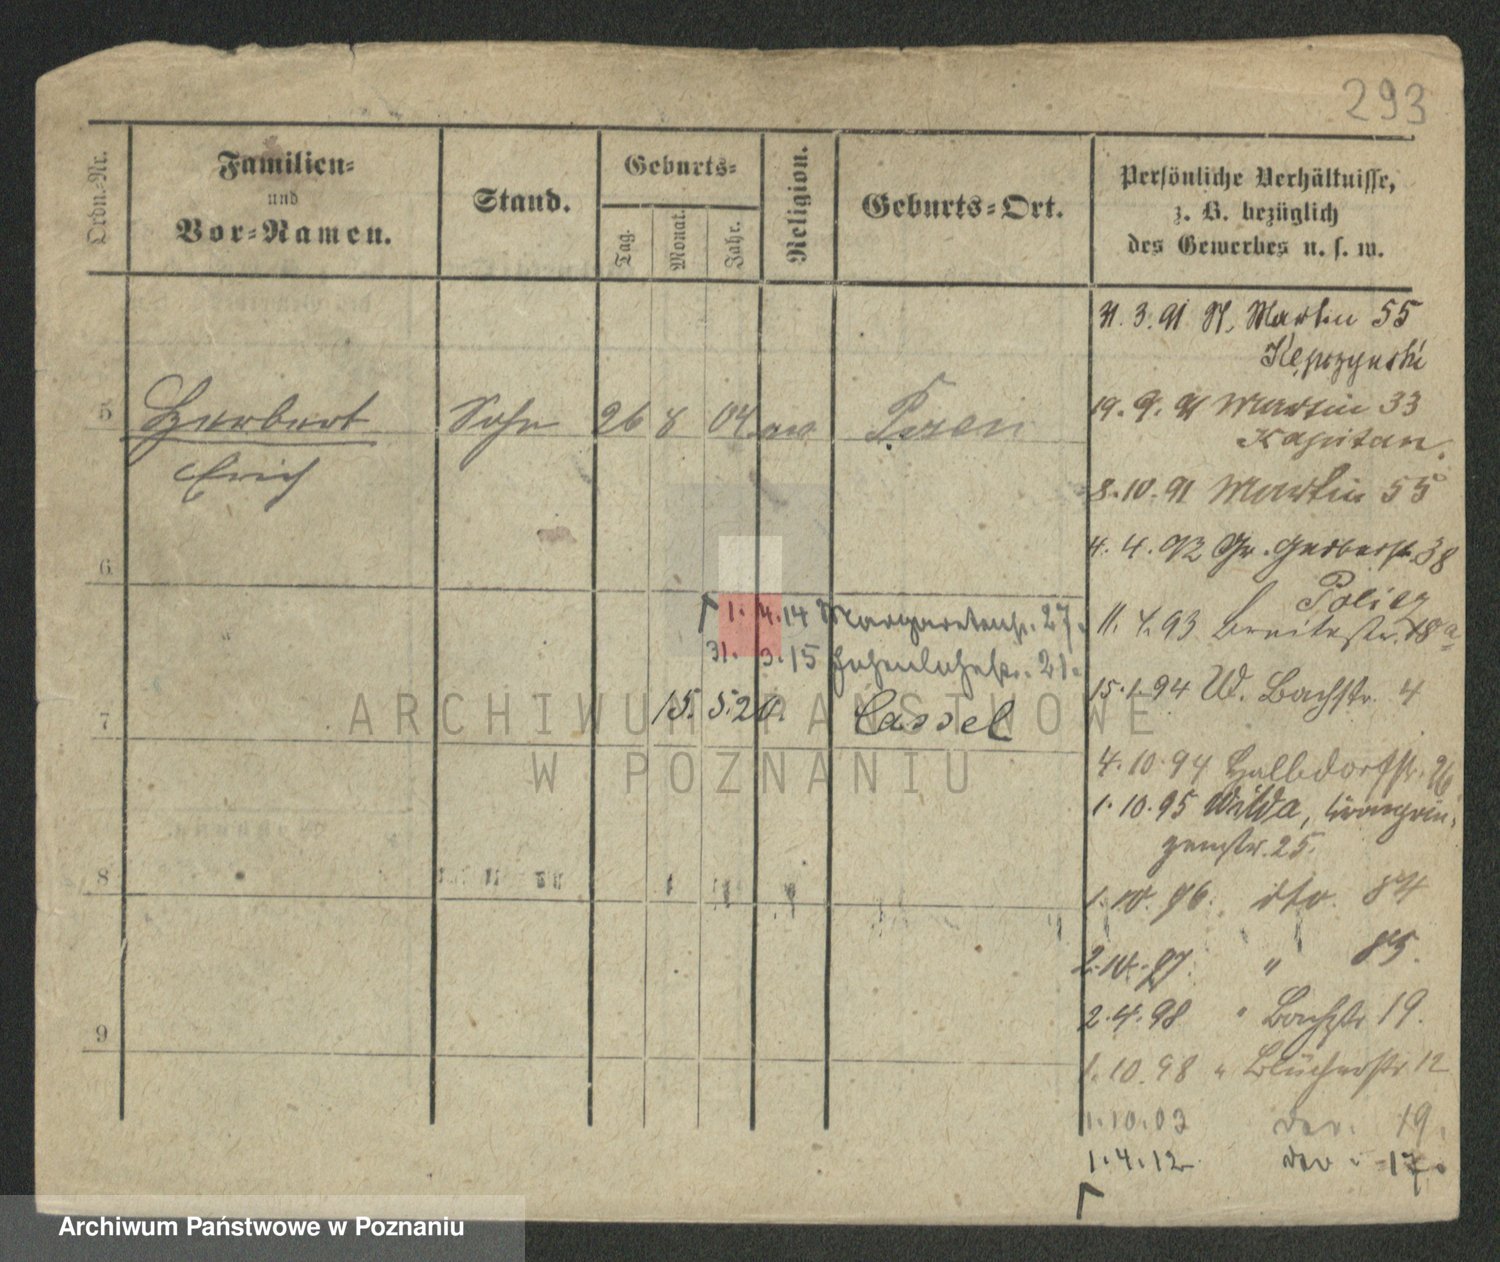 293
Ordn.-Nr.
Familien-
und
Vor-Namen.
Stand.
Geburts-
Tag.
Monat.
Jahr.
Religion.
Geburts-Ort.
Persönliche Verhältnisse,
z. B. bezüglich
des Gewerbes u. s. w.
31. 3. 91 St. Martin 55
19. 9. 91 Martin 33
Kapitan.
5 Herbert Sohn 26 8 04 Posen
Erich
8. 10. 91 Martin 55
4. 4. 92 Gr. Gerberstr. 38
6
11. 4. 93 Breitestr. 18a
1. 4. 14 Margaretenstr. 27.
31. 3. 15 Hohenlohestr. 21.
15. 1. 94 W. Bachstr. 4
7 15. 5. 20. Cassel
4. 10. 94 Halbdorfstr. 26
1. 10. 95 Wilda, Kronprin-
zenstr. 25.
8
1. 10. 96. dto. 84
2. 10. 97. " 85.
2. 4. 98 " Bachstr 19.
9
1. 10. 98 " Blücherstr 12
1. 10. 03 19.
1. 4. 12 17.
ARCHIWUM PAŃSTWOWE
W POZNANIU
Archiwum Państwowe w Poznaniu